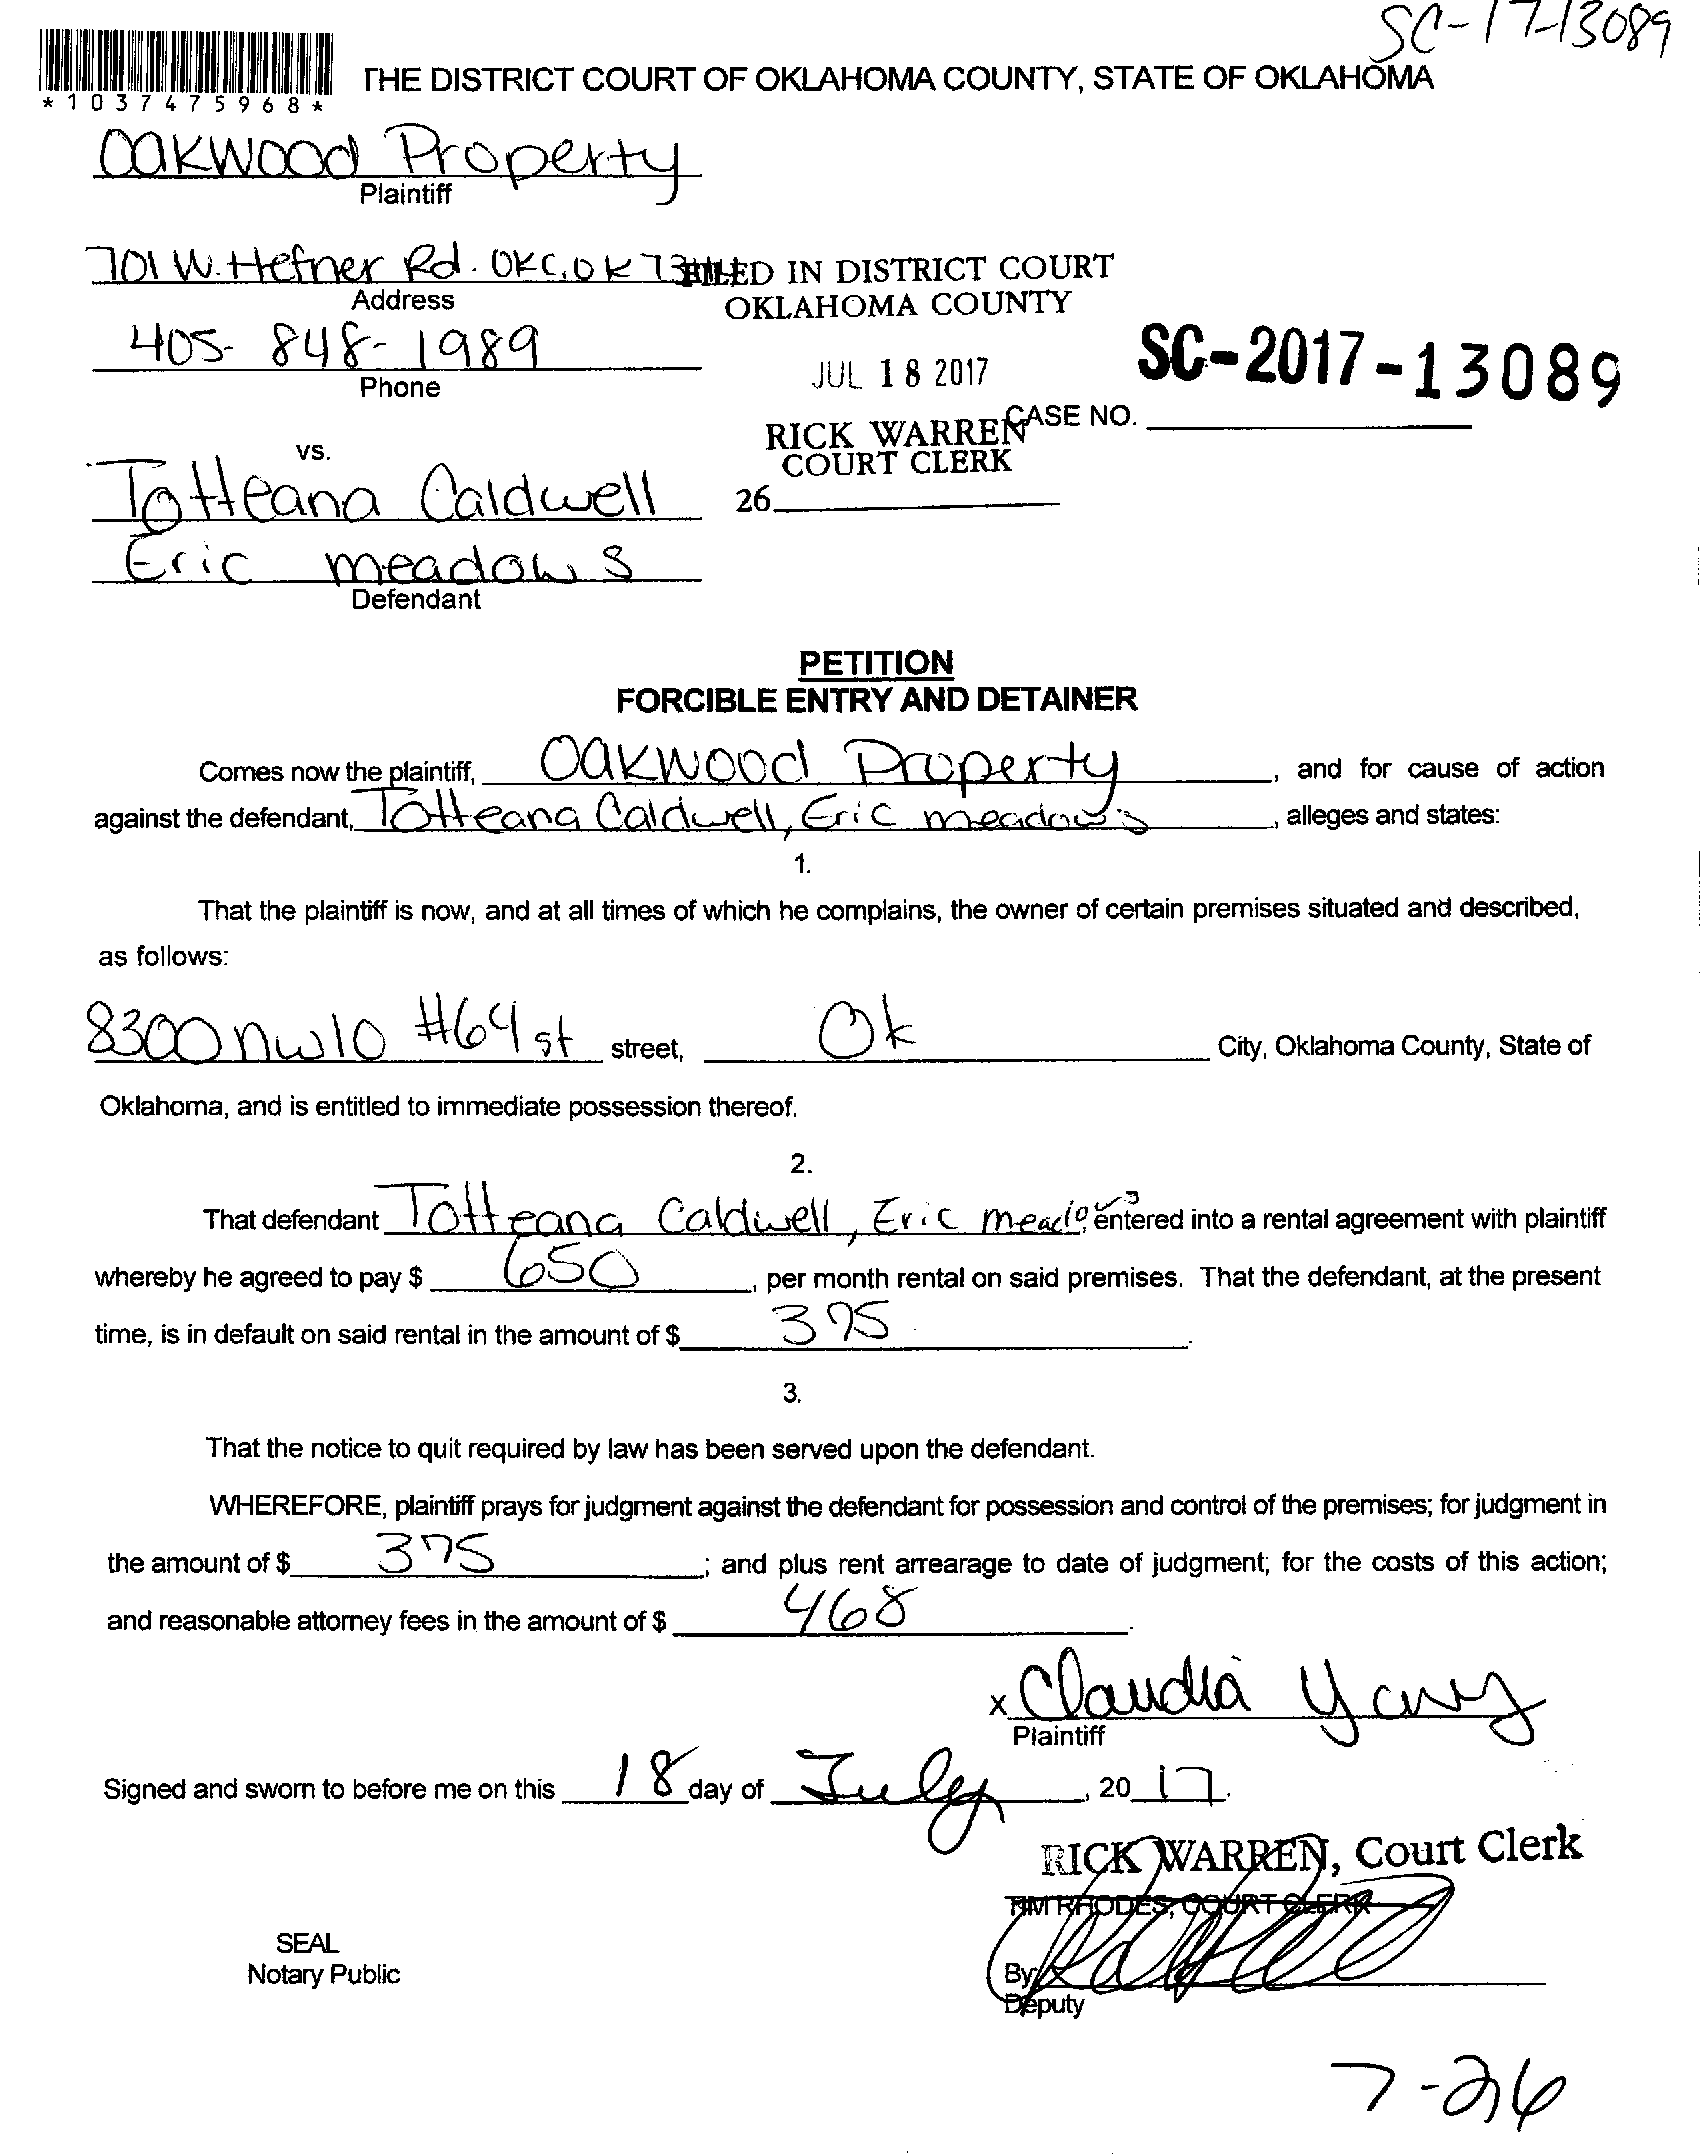 SC-17-13089
*1037475968*
THE DISTRICT COURT OF OKLAHOMA COUNTY, STATE OF OKLAHOMA
Oakwood Property
Plaintiff
701 W. Hefner Rd. OKC, OK
FILED IN DISTRICT COURT
Address
OKLAHOMA COUNTY
405-848-1989
Phone
JUL 18 2017
SC-2017-13089
CASE NO.
RICK WARREN
COURT CLERK
vs.
26
Totteana Caldwell
Eric meadows
Defendant
PETITION
FORCIBLE ENTRY AND DETAINER
Comes now the plaintiff, Oakwood Property, and for cause of action
against the defendant, Totteana Caldwell, Eric meadows, alleges and states:
1.
That the plaintiff is now, and at all times of which he complains, the owner of certain premises situated and described,
as follows:
8300 nw 10 #64 st street, Ok City, Oklahoma County, State of
Oklahoma, and is entitled to immediate possession thereof.
2.
That defendant Totteana Caldwell, Eric meadows entered into a rental agreement with plaintiff
whereby he agreed to pay $ 650, per month rental on said premises. That the defendant, at the present
time, is in default on said rental in the amount of $ 375.
3.
That the notice to quit required by law has been served upon the defendant.
WHEREFORE, plaintiff prays for judgment against the defendant for possession and control of the premises; for judgment in
the amount of $ 375; and plus rent arrearage to date of judgment; for the costs of this action;
and reasonable attorney fees in the amount of $ 468.
x Claudia
Plaintiff
Signed and sworn to before me on this 18 day of July, 2017.
RICK WARREN, Court Clerk
TIM RHODES, COURT CLERK
SEAL
Notary Public
By
Deputy
7-26